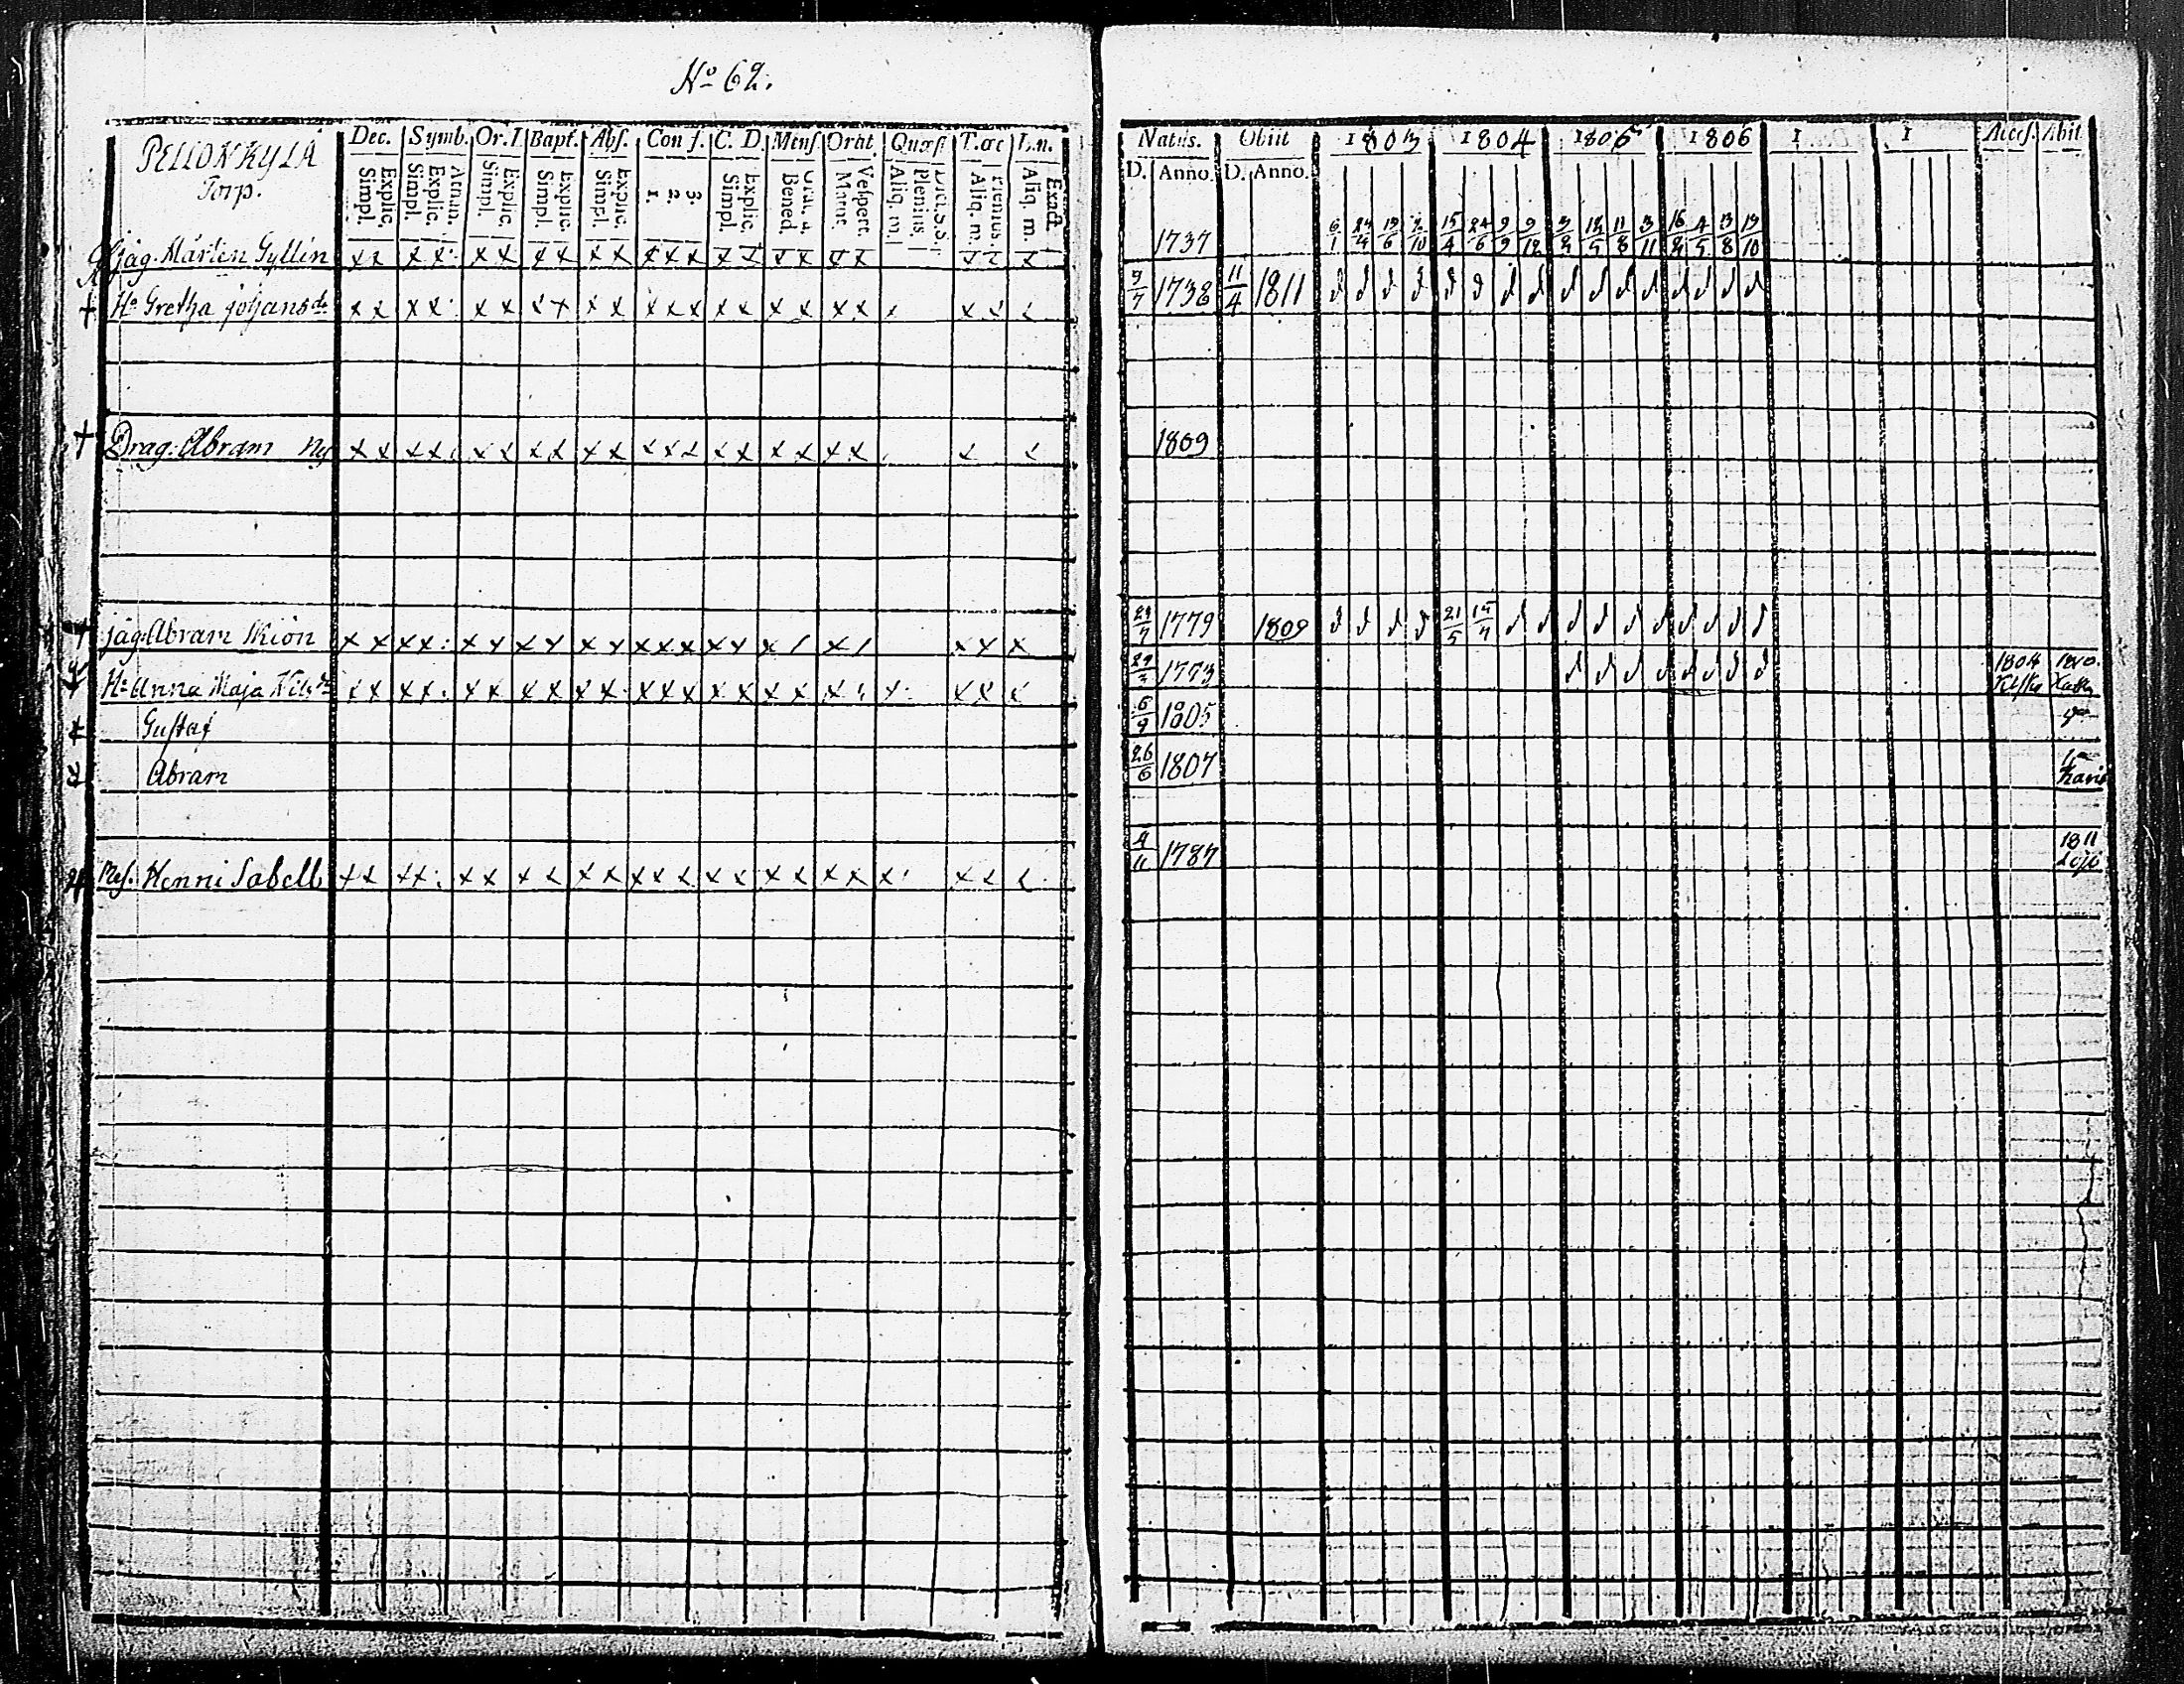 No 62.
PELLONKYLÄ
Torp.
Dec. Symb. Or. I. Bapt. Abs. Con f. C. D. Mens. Orat. Quæst T. œc L. n.
Simpl. Explic. Simpl. Explic. Athan. Simpl. Explic. Simpl. Explic. Simpl. Explic. 1. 2. 3. Simpl. Explic. Bened. Grat. a. Matut. Vespert. Aliq. m. Plenius Dict. S. S. Aliq. m. Plenius. Aliq. m. Exact
jäg. Mårten Gyllin x x x x x x x x x x x x x x x x x x x x x x
Hu Gretha johansdr x x x x x x x x x x x x x x x x x x x x x x x
Drag. Abram Ny x x x x x x x x x x x x x x x x x x x x x
jäg. Abram Skiön x x x x : x x x x x x x x x x x x / x / x x x
Hu Anna Maja Nils dr x x x x : x x x x x x x x x x x x x x x x x x x
Gustaf
Abram
Henni Sabell x x x x : x x x x x x x x x x x x x x x x x x x
Natus. Obiit 1803 1804 1805 1806 1 1 Access. Abit
D. Anno. D. Anno.
1737 6/1 24/4 19/6 2/10 15/4 24/6 9/9 9/12 3/2 12/5 11/8 3/11 16/2 4/5 13/8 19/10
9/7 1738 11/4 1811
1809
24/7 1779 1809 21/5 15/7
1773 1804 1810
6/9 1805
26/6 1807 Karis
4/11 1787 1811 Lojo